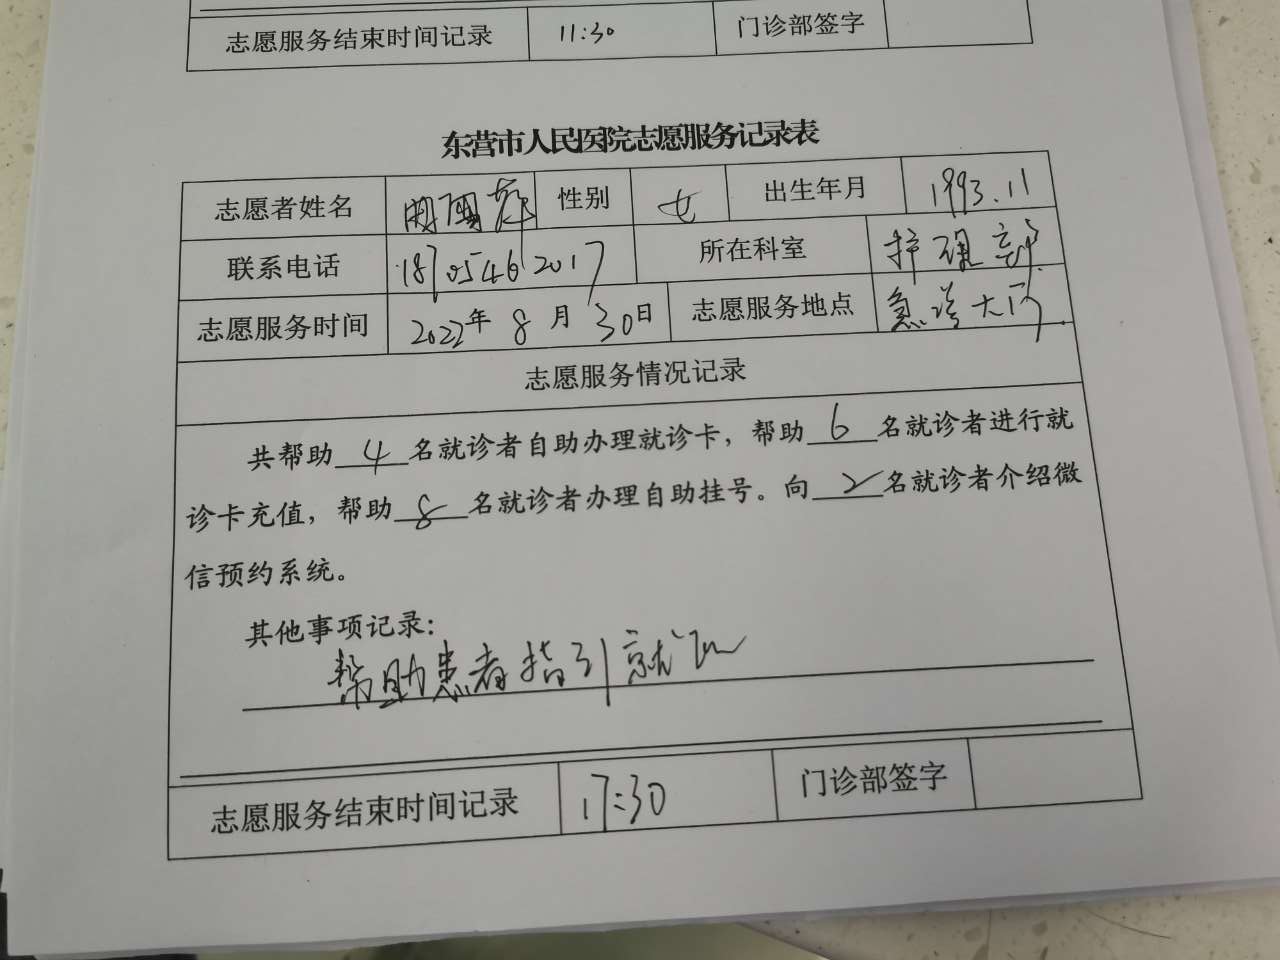 志愿服务结束时间记录 11:30 门诊部签字
东营市人民医院志愿服务记录表
志愿者姓名 性别 女 出生年月 1993.11
联系电话 18705462017 所在科室 护理部
志愿服务时间 2022年 8 月 30日 志愿服务地点 急诊大厅
志愿服务情况记录
共帮助 4 名就诊者自助办理就诊卡，帮助 6 名就诊者进行就
诊卡充值，帮助 8 名就诊者办理自助挂号。向 2 名就诊者介绍微
信预约系统。
其他事项记录：
帮助患者指引就医
志愿服务结束时间记录 17:30 门诊部签字